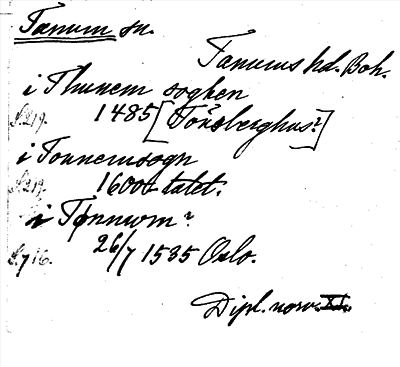 Tanum sn.
Tanums hd. Boh.
i Thunem soghen
S. 219. 1485 [Tönsberghus?]
i Tonnemsogn
S. 219. 1600-talet.
i Tønnwm?
S. 716. 26/7 1535 Oslo.
Dipl. norv. XI.